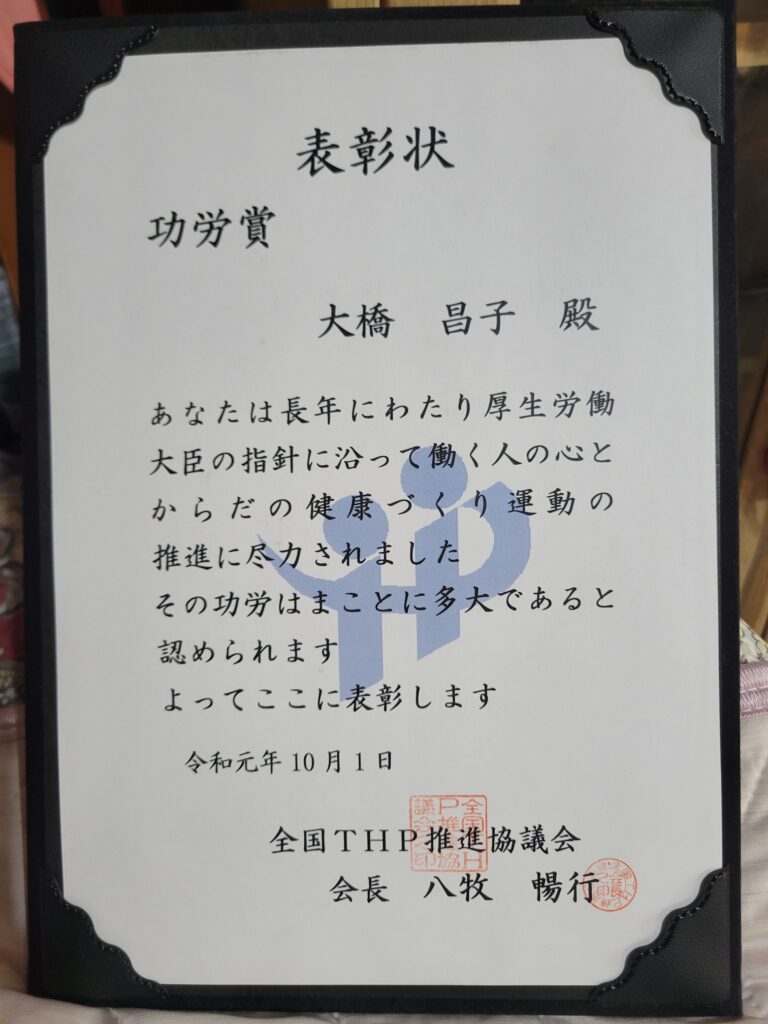 表彰状
功労賞
大橋 昌子 殿
あなたは長年にわたり厚生労働
大臣の指針に沿って働く人の心と
からだの健康づくり運動の
推進に尽力されました
その功労はまことに多大であると
認められます
よってここに表彰します
令和元年10月1日
全国THP推進協議会
会長 八牧 暢行